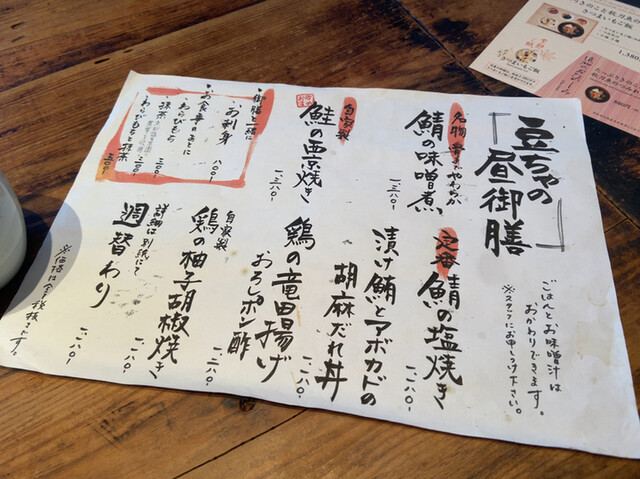 豆ちゃの
昼御膳
ごはんとお味噌汁は
おかわりできます。
※スタッフにお申しつけ下さい。
名物 骨までやわらか
鯖の味噌煮
一、三八〇-
定番 鯖の塩焼き
一、二八〇-
漬け鮪とアボカドの
胡麻だれ丼
一、二八〇-
自家製
鮭の西京焼き
一、三八〇-
鶏の竜田揚げ
おろしポン酢
一、二八〇-
自家製
鶏の柚子胡椒焼き
一、二八〇-
詳細は別紙にて
週替わり
一、二八〇-
御膳と一緒に
お刺身
八〇〇-
お食事のあとに
わらびもち
三〇〇-
抹茶
三〇〇-
わらびもちと抹茶
五〇〇-
※価格は全て税抜きです。
さつまいもご飯
1,380